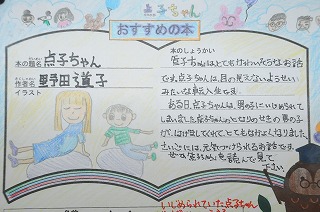 点子ちゃん
おすすめの本
本の題名 点子ちゃん
作者名 野田道子
イラスト
本のしょうかい
点子ちゃんはとてもかわいそうなお話
です。点子ちゃんは、目の見えないようせい
みたいな転入生です。
ある日、点子ちゃんは、男の子にいじめられて
しまい
となりのせきの男の子
が、はげましてくれて、とてもなかよくなりました。
さいごには、元気づけられるお話です。
点子ちゃんを読んで見て
下さい。
いじめられていた点子ちゃん